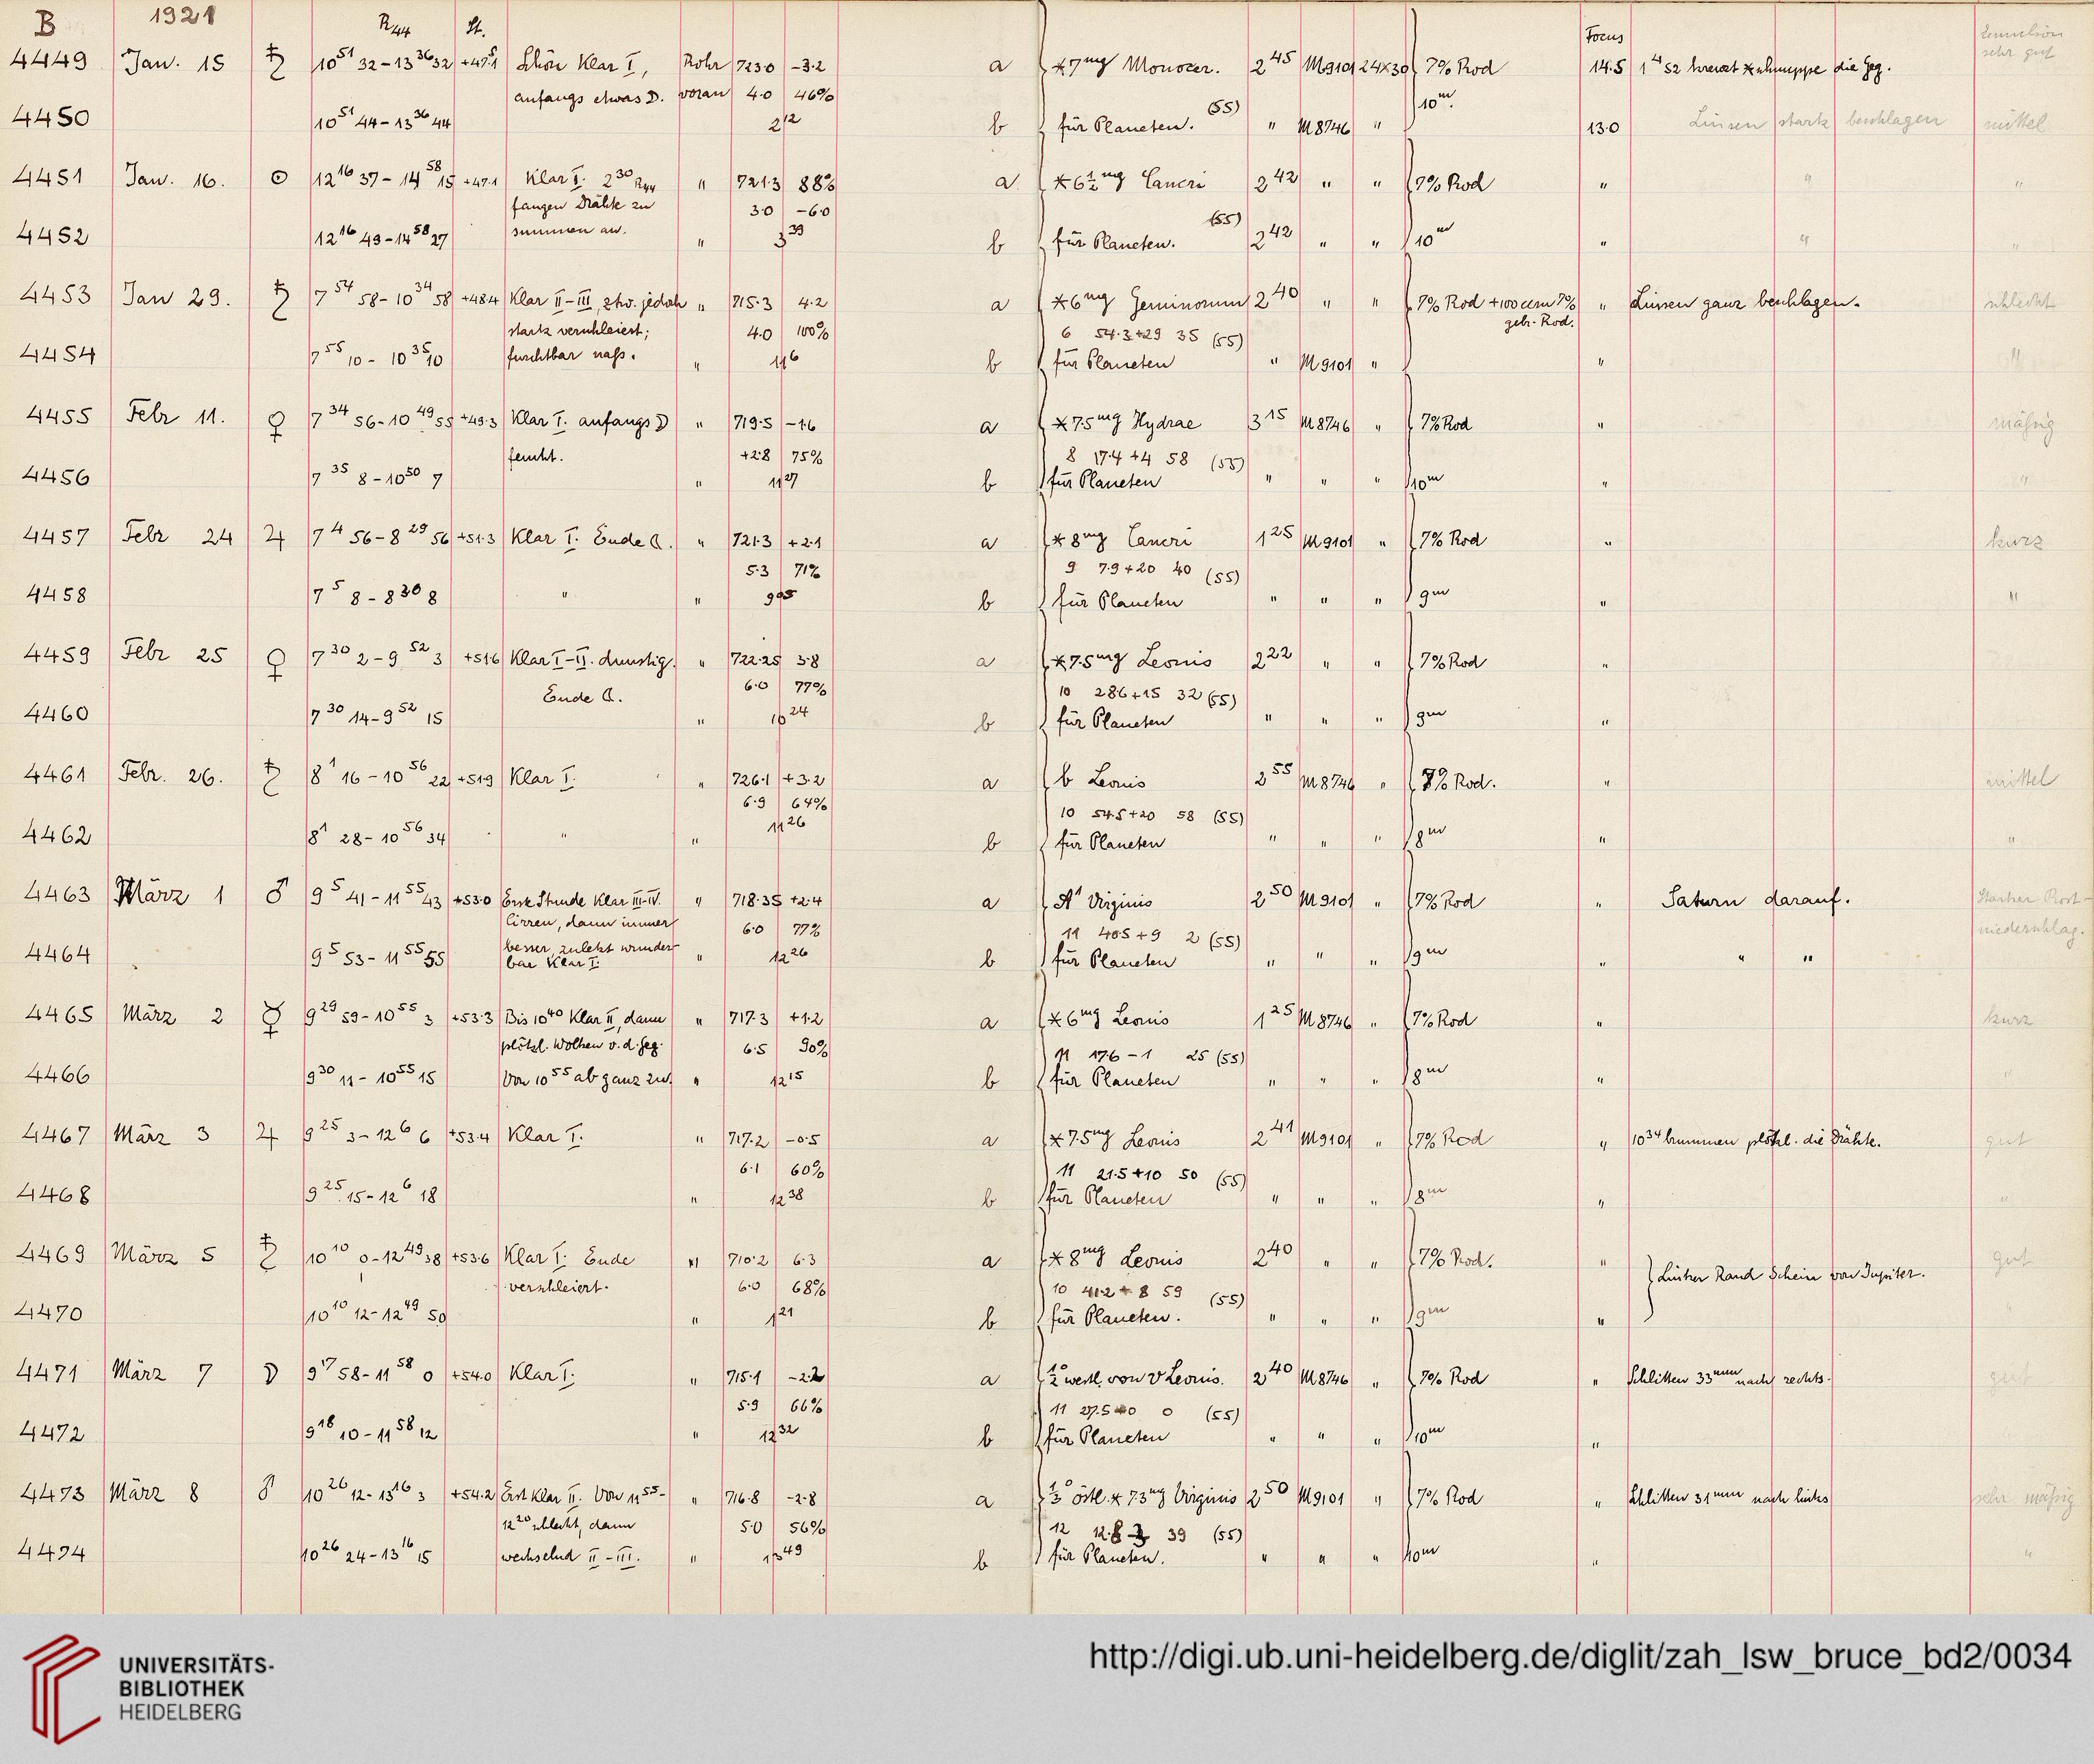 B 1921 R44 St. Focus
4449 Jan. 15 ♄ 10 51 32 – 13 36 32 +47.1 Schön Klar I, Rohr 723.0 –3.2 a *7mg Monocer. 2 45 M9101 24×30 7% Rod 14.5 die Geg. sehr gut
anfangs etwas D. voran 4.0 46% 10m.
4450 10 51 44 – 13 36 44 2 12 b für Planeten. (55) " M8746 " 13.0 Linsen stark beschlagen mittel
4451 Jan. 16. ☉ 12 16 37 – 14 58 15 +47.1 Klar I. 2 30 R44 " 721.3 88% a *6½mg Cancri 2 42 " " 7% Rod " " "
fangen Drähte zu 3.0 –6.0
4452 12 16 49 – 14 58 27 summen an. " 3 39 b für Planeten. (55) 2 42 " " 10m " " "
4453 Jan 29. ♄ 7 54 58 – 10 34 58 +48.4 Klar II–III, ztw. jedoch " 715.3 4.2 a *6mg Geminorum 2 40 " " 7% Rod + 100 ccm 7% " Linsen ganz beschlagen. schlecht
stark verschleiert; 4.0 100% 6 54.3 +29 35 (55) gebr. Rod.
4454 7 55 10 – 10 35 10 furchtbar naß. " 11 6 b für Planeten " M9101 " " "
4455 Febr 11. ♀ 7 34 56 – 10 49 55 +49.3 Klar I. anfangs D " 719.5 –1.6 a *7.5mg Hydrae 3 15 M8746 " 7% Rod " mäßig
feucht. +2.8 75% 8 17.4 +4 58 (55)
4456 7 35 8 – 10 50 7 " 11 27 b für Planeten " " " 10m " "
4457 Febr 24 ♃ 7 4 56 – 8 29 56 +51.3 Klar I. Ende Q. " 721.3 +2.1 a *8mg Cancri 1 25 M9101 " 7% Rod " kurz
5.3 71% 9 7.9 +20 40 (55)
4458 7 5 8 – 8 30 8 " " 9 05 b für Planeten " " " 9m " "
4459 Febr 25 ♀ 7 30 2 – 9 52 3 +51.6 Klar I–II. dunstig. " 722.25 3.8 a *7.5mg Leonis 2 22 " " 7% Rod "
Ende Q. 6.0 77% 10 28.6 +15 32 (55)
4460 7 30 14 – 9 52 15 " 10 24 b für Planeten " " " 9m "
4461 Febr. 26. ♄ 8 1 16 – 10 56 22 +51.9 Klar I. " 726.1 +3.2 a b Leonis 2 55 M8746 " 7% Rod. " mittel
6.9 64% 10 54.5 +20 58 (55)
4462 8 1 28 – 10 56 34 " " 11 26 b für Planeten " " " 8m " "
4463 März 1 ♂ 9 5 41 – 11 55 43 +53.0 Erste Stunde Klar III–IV. " 718.35 +2.4 a A1 Virginis 2 50 M9101 " 7% Rod " Saturn darauf. Starker Rost-
Cirren, dann immer 6.0 77% 11 40.5 +9 2 (55) niederschlag.
4464 9 5 53 – 11 55 55 besser, zuletzt wunder- " 12 26 b für Planeten " " " 9m " " "
bar Klar I
4465 März 2 ☿ 9 29 59 – 10 55 3 +53.3 Bis 10 40 Klar II, dann " 717.3 +1.2 a *6mg Leonis 1 25 M8746 " 7% Rod " kurz
plötzl. Wolken v. d. Geg. 6.5 90% 11 17.6 –1 25 (55)
4466 9 30 11 – 10 55 15 Von 10 55 ab ganz zu. " 12 15 b für Planeten " " " 8m " "
4467 März 3 ♃ 9 25 3 – 12 6 6 +53.4 Klar I. " 717.2 –0.5 a *7.5mg Leonis 2 41 M9101 " 7% Rod " 10 34 brummen plötzl. die Drähte. gut
6.1 60% 11 21.5 +10 50 (55)
4468 9 25 15 – 12 6 18 " 12 38 b für Planeten " " " 8m " "
4469 März 5 ♄ 10 10 0 – 12 49 38 +53.6 Klar I. Ende " 710.2 6.3 a *8mg Leonis 2 40 " " 7% Rod. " Linker Rand Schein von Jupiter. gut
verschleiert. 6.0 68% 10 41.2 +8 59 (55)
4470 10 10 12 – 12 49 50 " 1 21 b für Planeten. " " " 9m " "
4471 März 7 ☽ 9 17 58 – 11 58 0 +54.0 Klar I. " 715.1 –2.2 a ½° westl. von υ Leonis. 2 40 M8746 " 7% Rod " Schlitten 33mm nach rechts. gut
5.9 66% 11 27.5 0 0 (55)
4472 9 18 10 – 11 58 12 " 12 32 b für Planeten " " " 10m "
4473 März 8 ♂ 10 26 12 – 13 16 3 +54.2 Erst Klar II. Von 11 55 – " 716.8 –2.8 a ⅓° östl. *7.3mg Virginis 2 50 M9101 " 7% Rod " Schlitten 31mm nach links sehr mäßig
12 20 schlecht, dann 5.0 56% 12 39 (55)
4474 10 26 24 – 13 16 15 wechselnd II–III. " 49 b für Planeten. " " " 10m " "
UNIVERSITÄTS-
BIBLIOTHEK
HEIDELBERG
http://digi.ub.uni-heidelberg.de/diglit/zah_lsw_bruce_bd2/0034